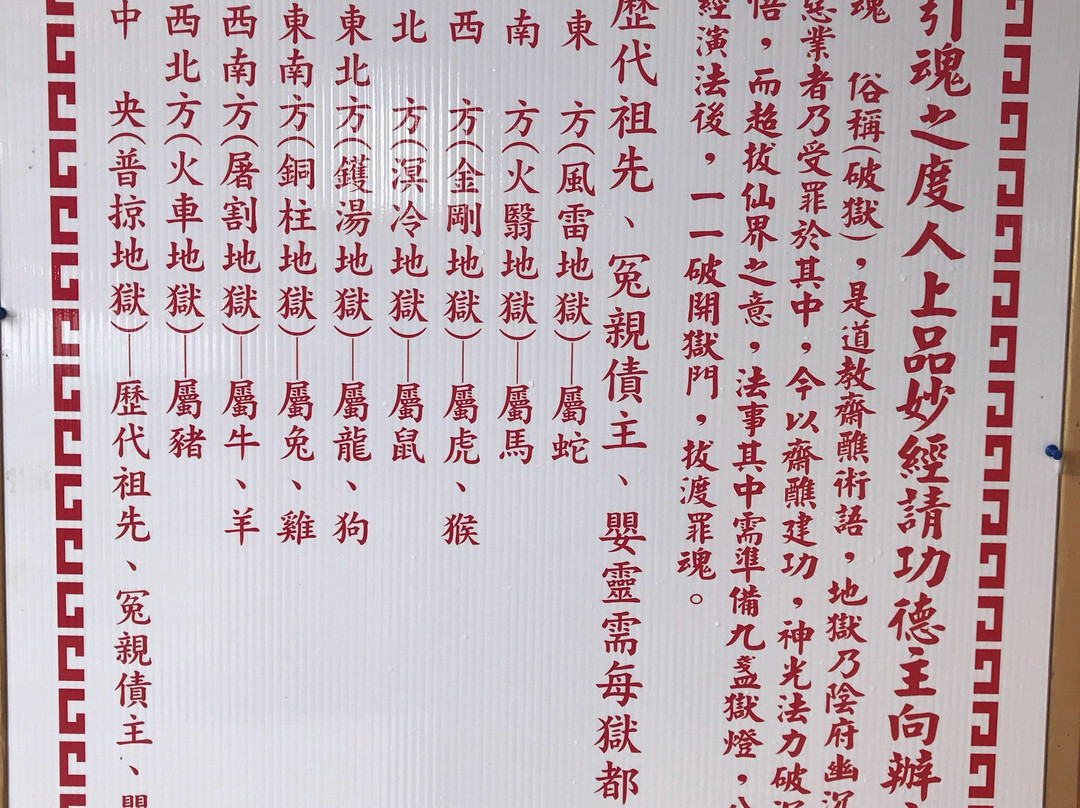 引魂之度人上品妙經請功德主向辦
魂 俗稱(破獄)，是道教齋醮術語，地獄乃陰府幽沉
惡業者乃受罪於其中，今以齋醮建功，神光法力破
悟，而超拔仙界之意，法事其中需準備九盞獄燈，
經演法後，一一破開獄門，拔渡罪魂。
歷代祖先、冤親債主、嬰靈需每獄都
東 方(風雷地獄)—屬蛇
南 方(火翳地獄)—屬馬
西 方(金剛地獄)—屬虎、猴
北 方(溟冷地獄)—屬鼠
東北方(鑊湯地獄)—屬龍、狗
東南方(銅柱地獄)—屬兔、雞
西南方(屠割地獄)—屬牛、羊
西北方(火車地獄)—屬豬
中 央(普掠地獄)—歷代祖先、冤親債主、